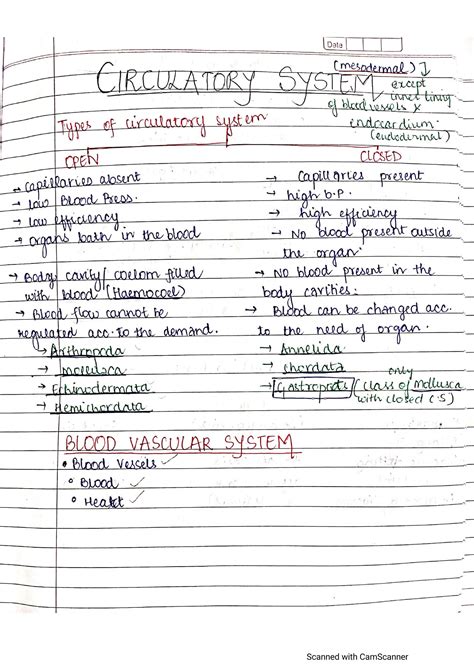 Date
(mesodermal)
CIRCULATORY SYSTEM
except
inner lining
of blood vessels x
endocardium
(endodermal)
Types of circulatory system
OPEN
→ capillaries absent
→ low Blood Press.
→ low efficiency
→ organs bath in the blood
→ Body cavity/ coelom filled
with blood (Haemocoel)
→ Blood flow cannot be
regulated acc. to the demand.
→ Arthropoda
→ molluscа
→ Echinodermata
→ Hemichordata
CLOSED
→ Capillaries present
→ high B.P.
→ high efficiency
→ No blood present outside
the organ
→ NO blood present in the
body cavities:
→ Blood can be changed acc.
to the need of organ.
→ Annelida
→ chordata
→ Gastropoda (only class of Mollusca
with closed C.S)
BLOOD VASCULAR SYSTEM
• Blood Vessels ✓
• Blood ✓
• Heart ✓
Scanned with CamScanner